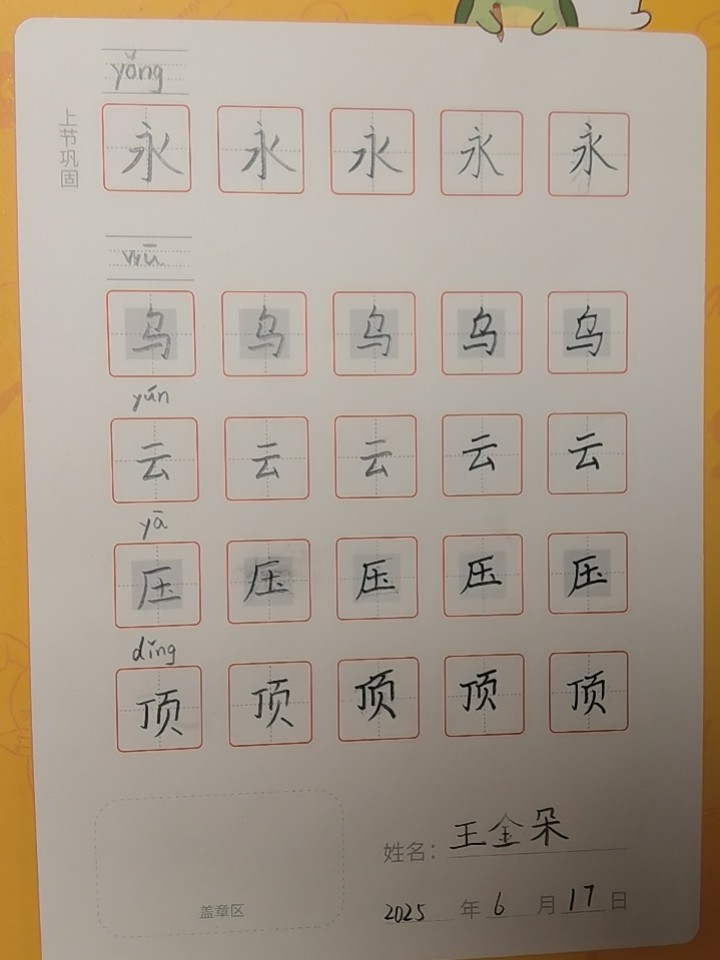 yǒng
上节巩固
永 永 永 永 永
wū
乌 乌 乌 乌 乌
yún
云 云 云 云 云
yā
压 压 压 压 压
dǐng
顶 顶 顶 顶 顶
姓名: 王金朵
2025 年 6 月 17 日
盖章区